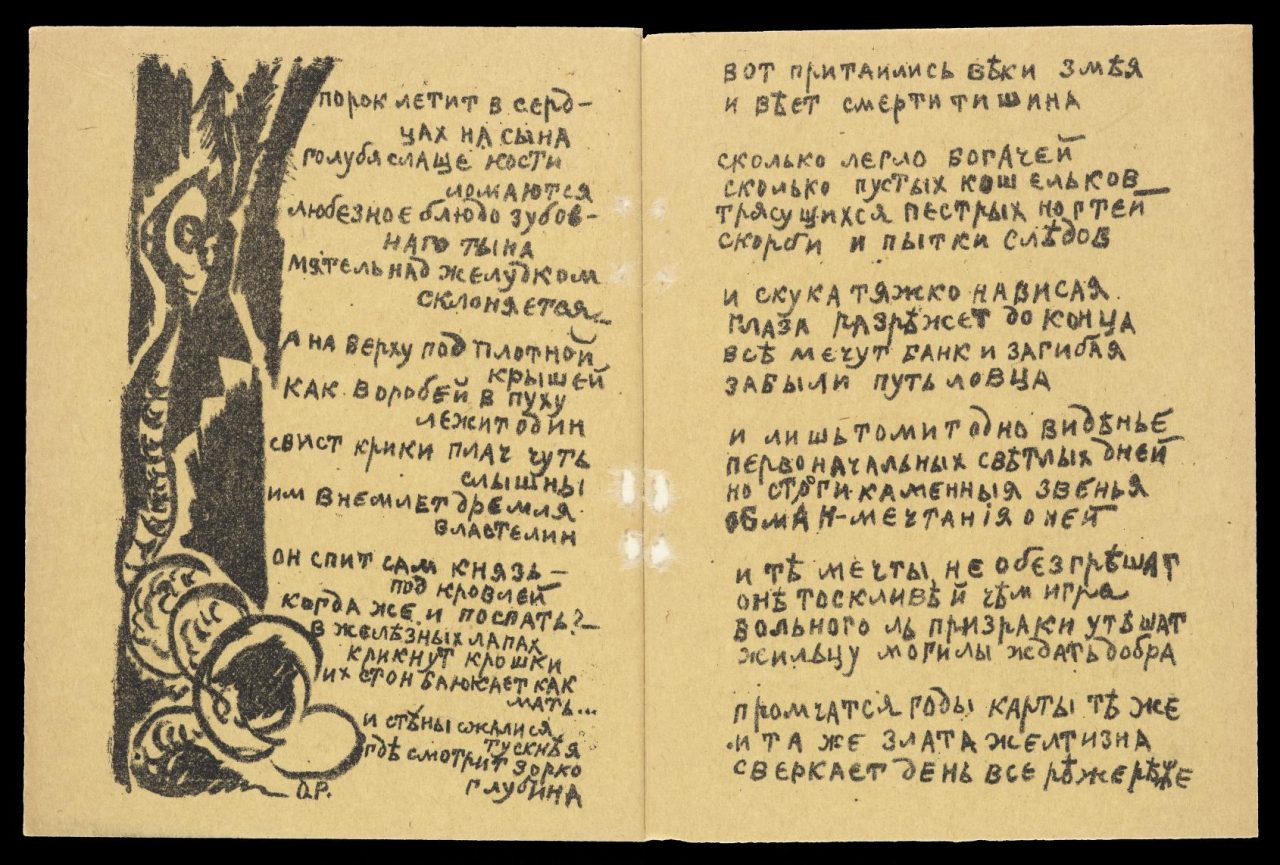 порок летит в серд-
цах на сына
голубя слаще кости
ломаются
любезное блюдо зубов-
наго тына
мятель над желудком
склоняется...
А на верху под плотной
крышей
как воробей в пуху
лежит один
свист крики плач чуть
слышны
им внемлет дремля
властелин
он спит сам князь —
под кровлей
когда же и поспать?—
в желѣзных лапах
крикнут крошки
их стон баюкает как
мать...
и стѣны сжалися
тускнѣя
гдѣ смотрит зорко
глубина
О.Р.
вот притаились вѣки змѣя
и вѣет смерти тишина
сколько легло богачей
сколько пустых кошельков
трясущихся пестрых ногтей
скорби и пытки слѣдов
и скука тяжко нависая
глаза разрѣжет до конца
всѣ мечут банк и загибая
забыли путь ловца
и лишь томит одно видѣнье
первоначальных свѣтлых дней
но строги каменныя звенья
обман-мечтанія о ней
и тѣ мечты не обезгрѣшат
онѣ тоскливѣй чѣм игра
больного ль призраки утѣшат
жильцу могилы ждать добра
промчатся годы карты тѣ же
и та же злата желтизна
сверкает день все рѣже рѣже